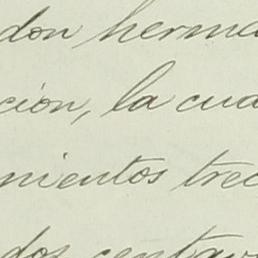 don herma
ción, la cua
mientos trec
dos centav